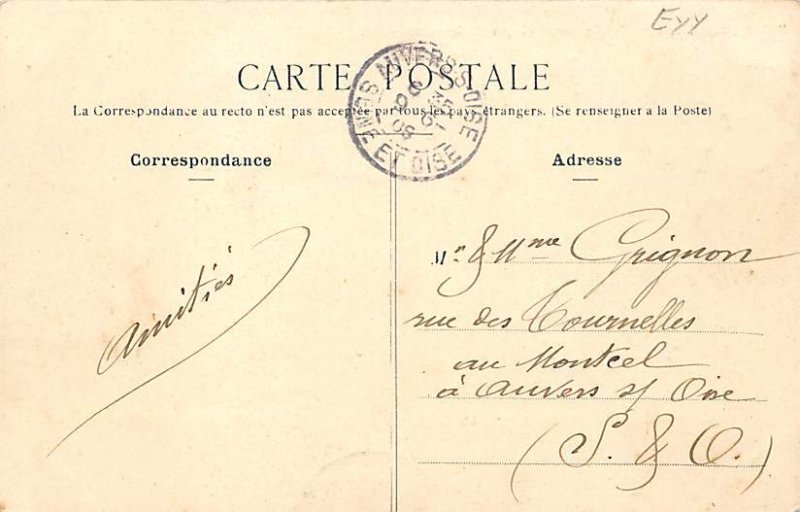 Eyy
CARTE POSTALE
AUVERS-S-OISE
SEINE-ET-OISE
La Correspondance au recto n'est pas acceptée par tous les pays étrangers. (Se renseigner à la Poste)
Correspondance
Amitiés
Adresse
Mr & Mme Grignon
rue des Tournelles
au Montcel
à Auvers s/ Oise
(S. & O.)